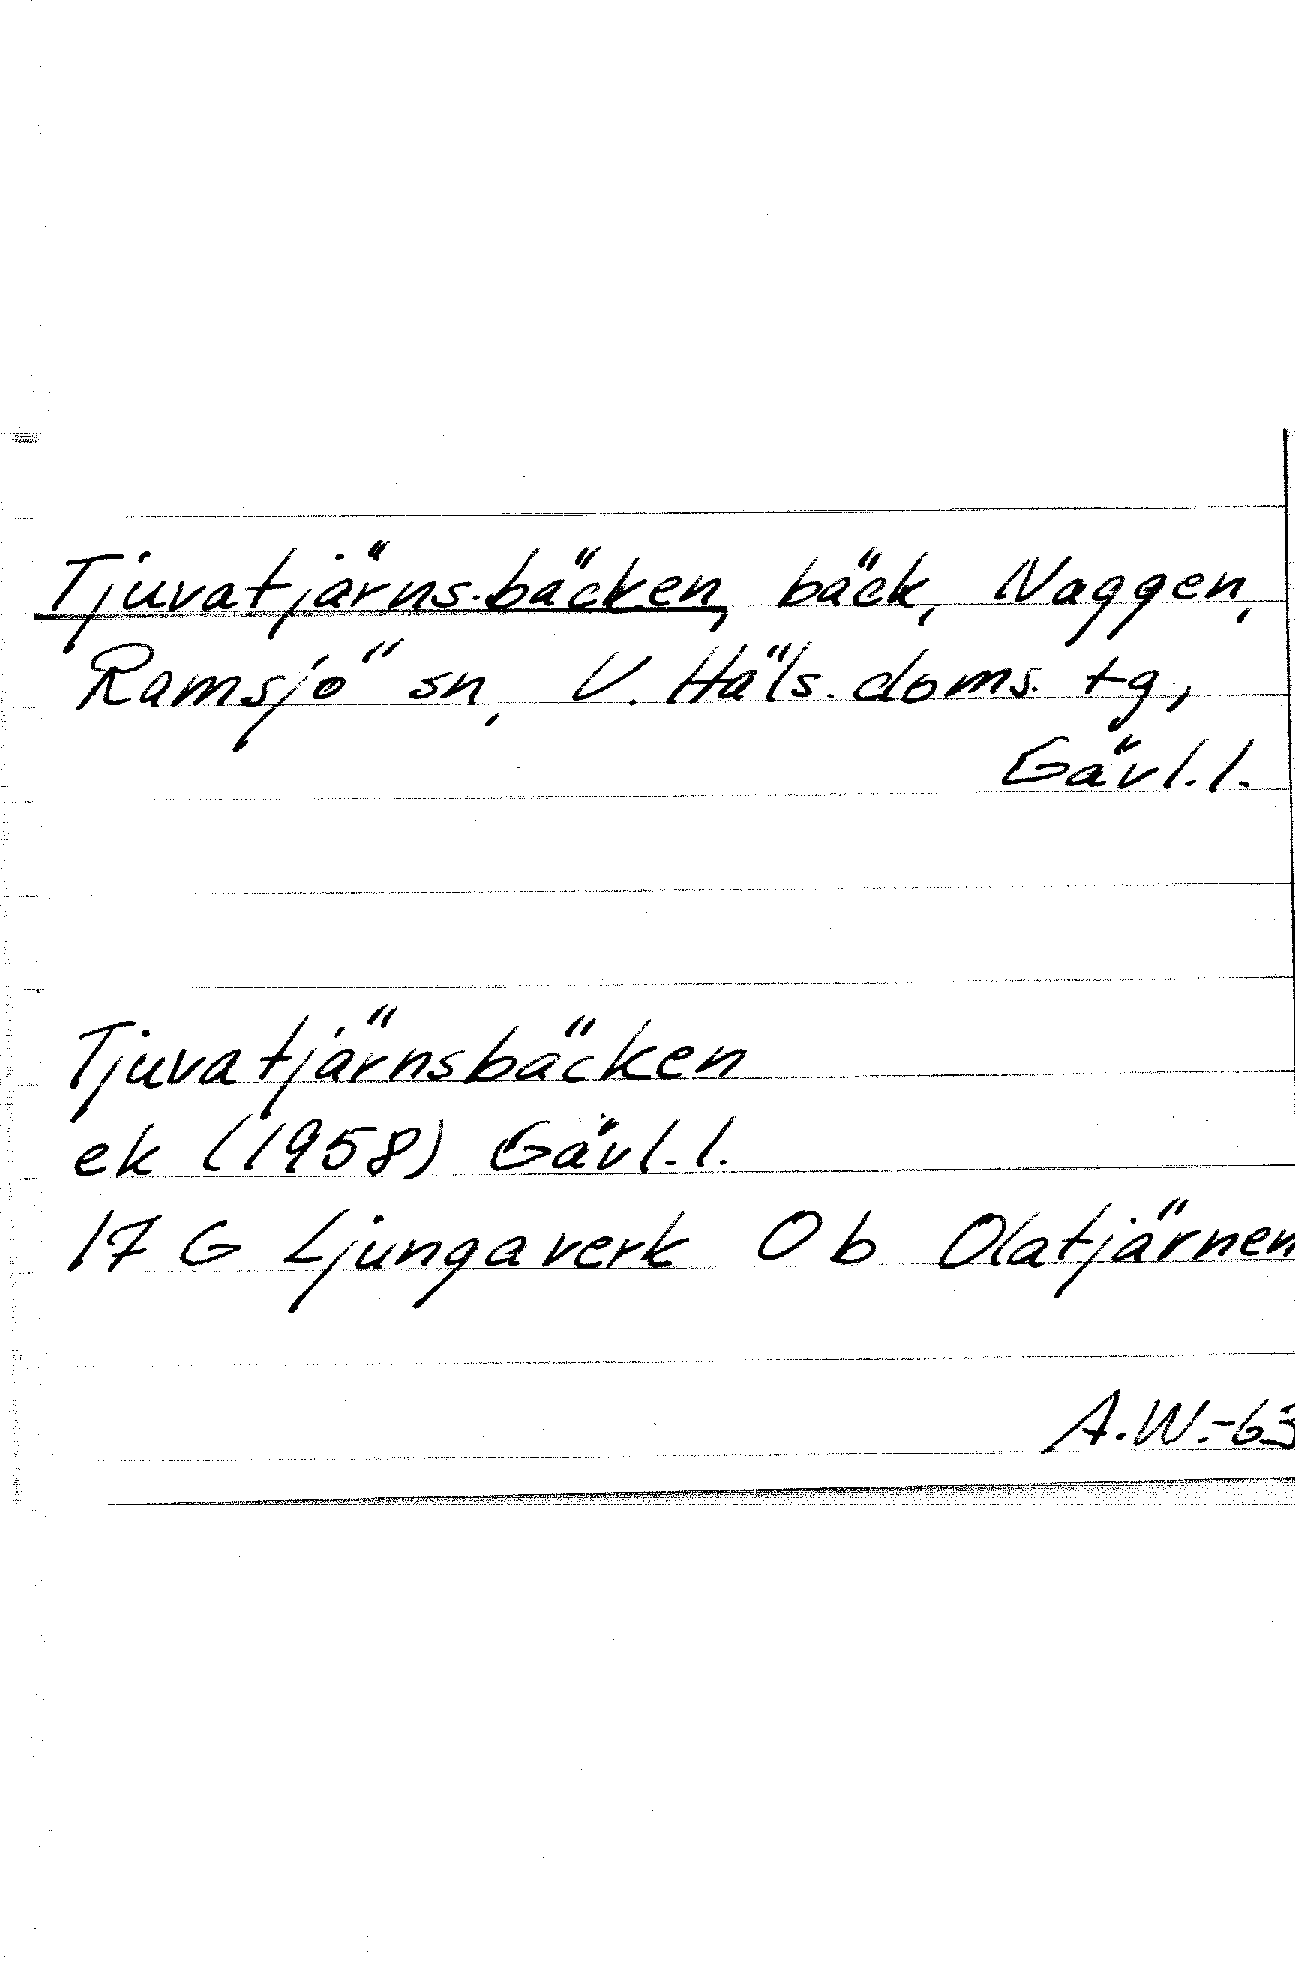 Tjuvatjärnsbäcken, bäck, Naggen,
Ramsjö sn, V. Häls. doms. tg,
Gävl. l.
Tjuvatjärnsbäcken
ek (1958) Gävl. l.
17 G Ljungaverk O b Olatjärnen
A.W.-63